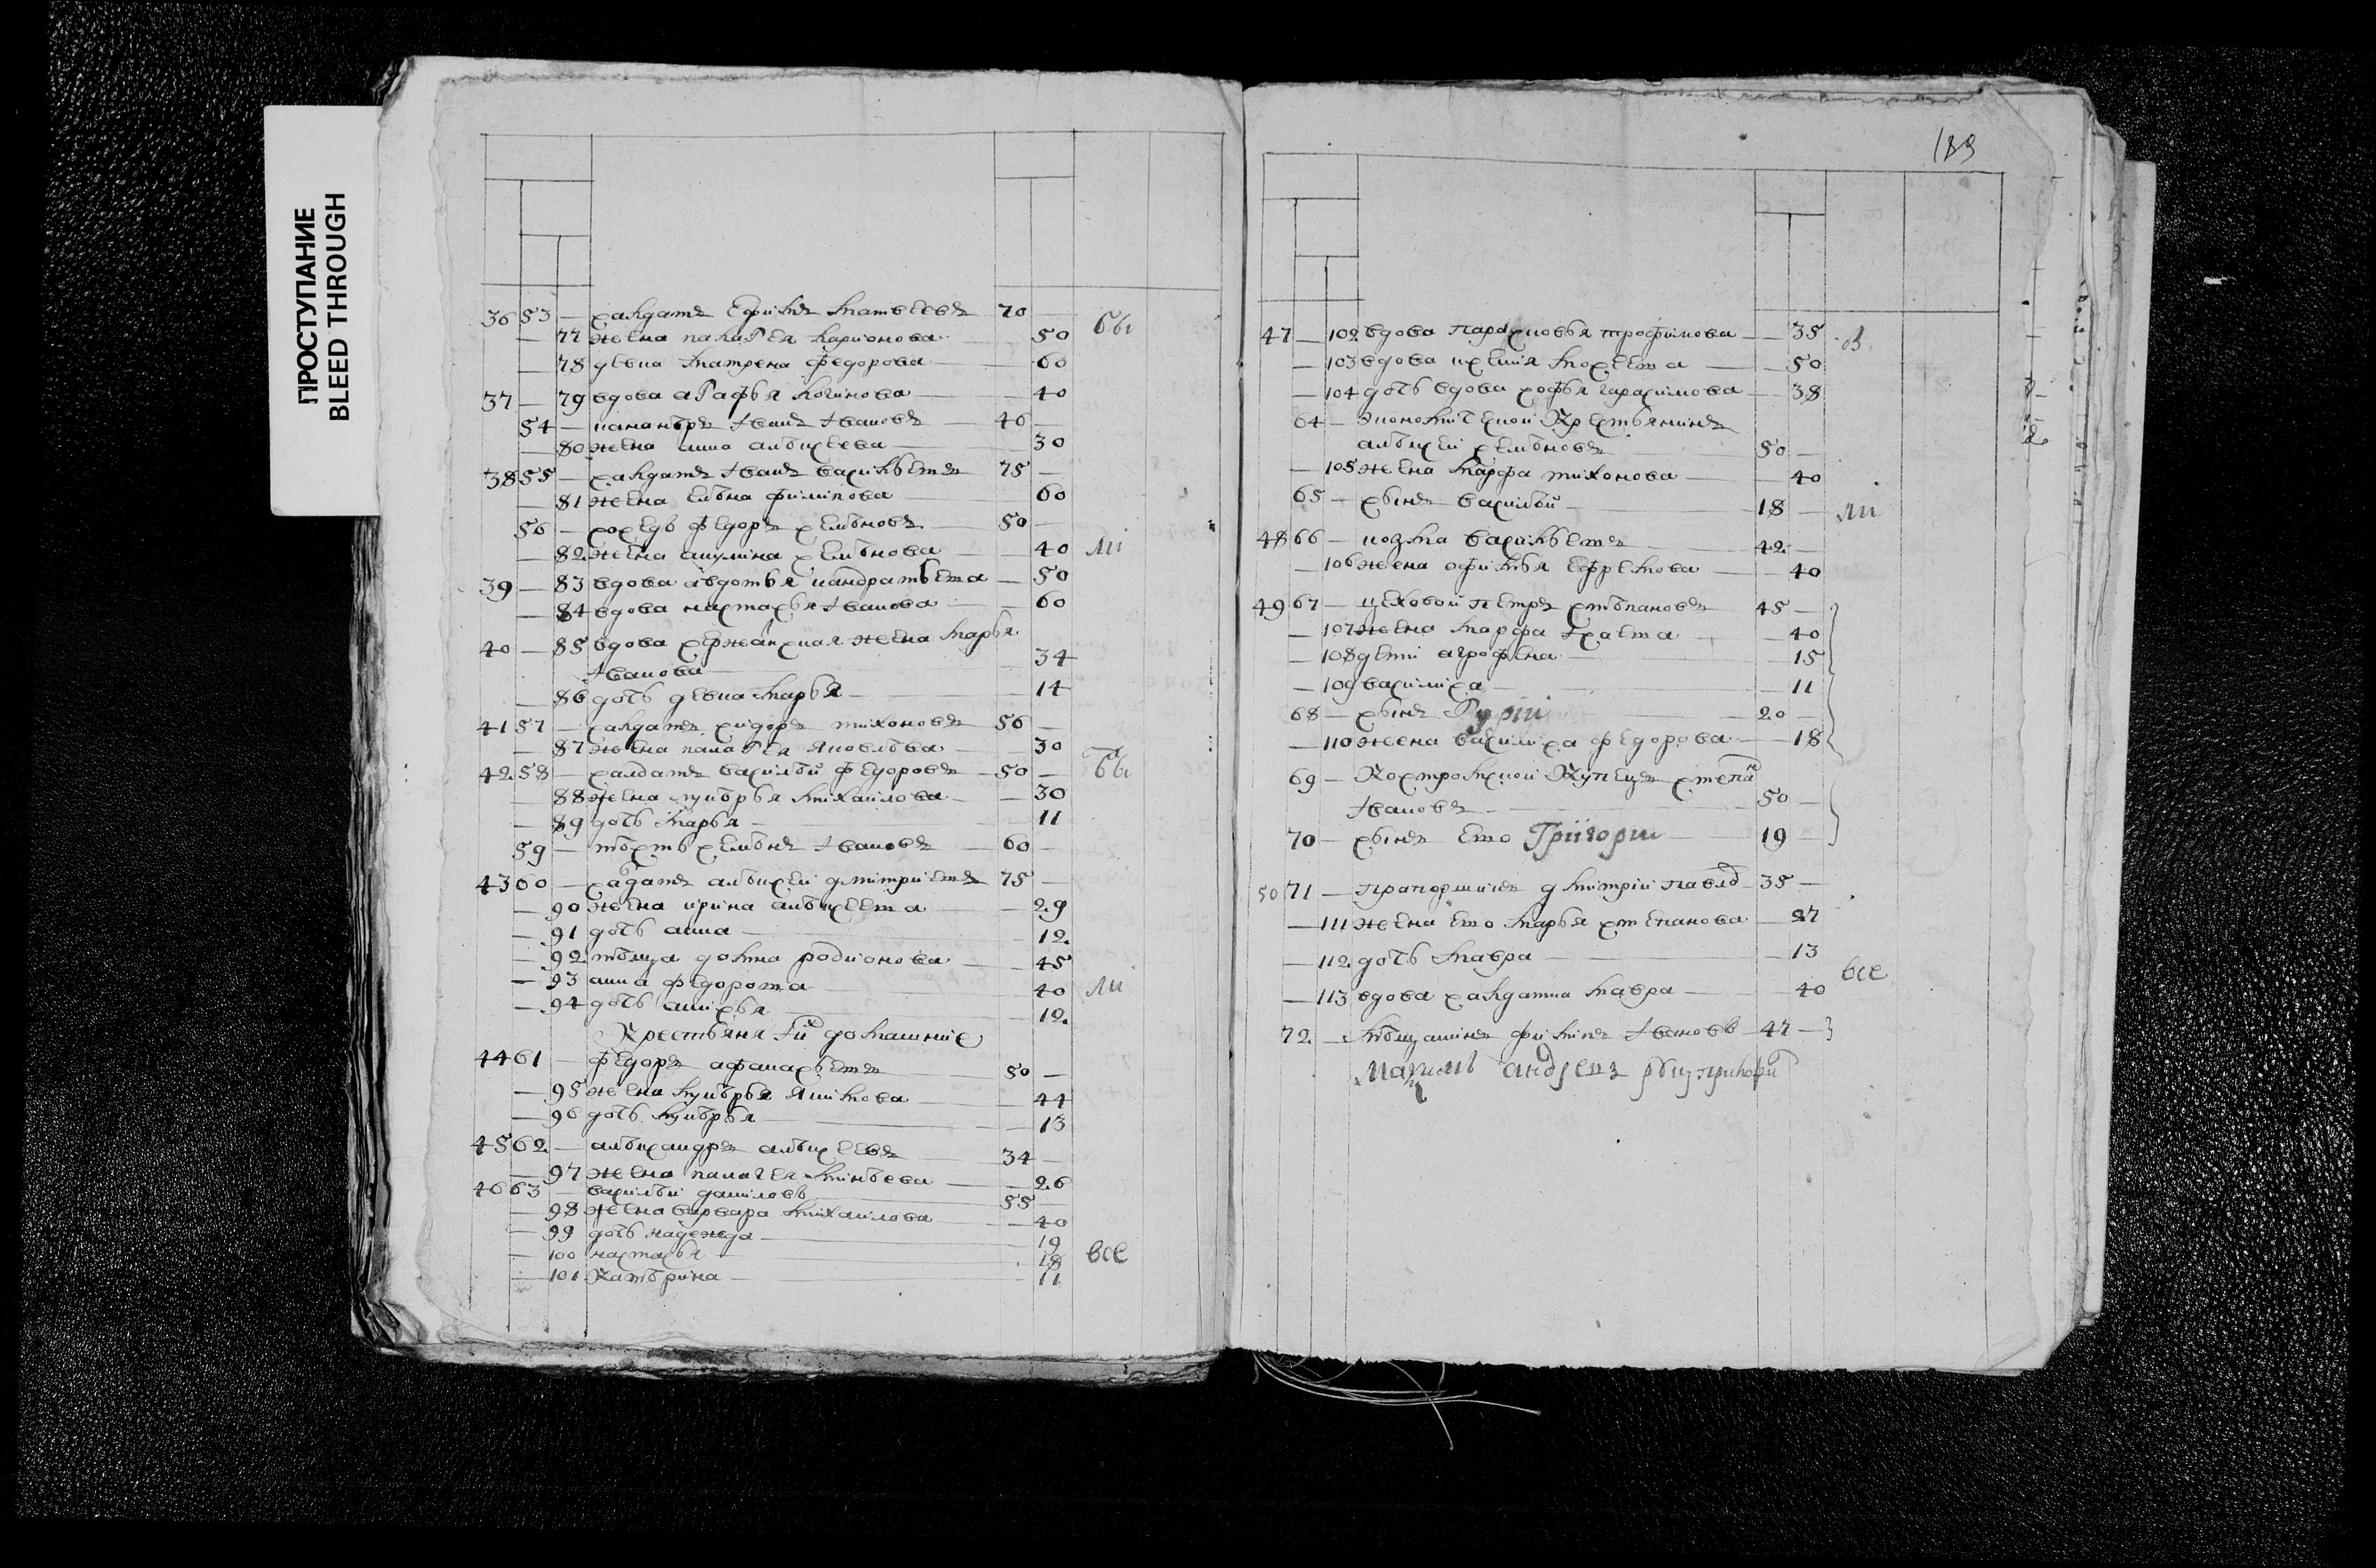 ПРОСТУПАНИЕ
BLEED THROUGH
36 53 — салдатъ Ефимъ матвеевъ 70 —
— 77 жена палагея ларионова — 50 бы
— 78 девка матрена федорова — 60
37 — 79 вдова агафья логинова — 40
54 — иванъ ивановъ 40 —
— 80 жена анна алѣксеева — 30
38 55 — салдатъ иванъ василь евъ 75 —
— 81 жена елѣна филипова — 60
56 — соседъ федоръ семѣновъ 50 —
— 82 жена акулина семѣнова — 40 ли
39 — 83 вдова авдотья кандратьева — 50
— 84 вдова настасья иванова — 60
40 — 85 вдова сержанская жена марья
иванова — 34
— 86 дочь девка марья — 14
41 57 — салдатъ сидоръ тихоновъ 56 —
— 87 жена палагея яковлѣва — 30
42 58 — салдатъ василѣй федоровъ 50 — бы
— 88 жена лукѣрья михаилова — 30
— 89 дочь марья — 11
59 — тѣсть семѣнъ ивановъ 60 —
43 60 — садатъ алѣксеи дмитриевъ 75 —
— 90 жена ирина алѣксеева — 29
— 91 дочь анна — 12
— 92 домна родионова — 45
— 93 анна федорова — 40 ли
— 94 дочь анисья — 12
Крестьяня домашние
44 61 — федоръ афанасьевъ 50 —
— 95 жена лукѣрья якимова — 44
— 96 дочь лукѣрья — 13
45 62 — алѣксандръ алѣксеевъ 34 —
— 97 жена палагея минѣева — 26
46 63 — василѣй даниловъ 55 —
— 98 жена варвара михаилова — 40
— 99 дочь надежда — 19
— 100 настасья — 18 все
— 101 катѣрина — 11
189
47 — 102 вдова парасковья трофимова — 35 в
— 103 вдова ксения — 50
— 104 дочь вдова софья гарасимова — 38
64 — экономическои крестьянинъ
алѣксеи семѣновъ 50 —
— 105 жена марфа тихонова — 40
65 — сынъ василѣй 18 — ли
48 66 — козма васильевъ 42 —
— 106 жена офимья ефремова — 40
49 67 — цеховои петръ стѣпановъ 45 —
— 107 жена марфа исаева — 40
— 108 дети аграфена — 15
— 109 василиса — 11
68 — сынъ Гурии 20 —
— 110 жена василиса федорова — 18
69 — костромскои купецъ степан
ивановъ 50 —
70 — сынъ ево Григории 19 —
50 71 — прапорщикъ дмитрий павлов 35 —
— 111 жена ево марья степанова — 27
— 112 дочь мавра — 13
— 113 вдова салдатка мавра — 40 все
72 — мѣщанинъ филипъ ивановъ 47 —
андреевъ руку приложил